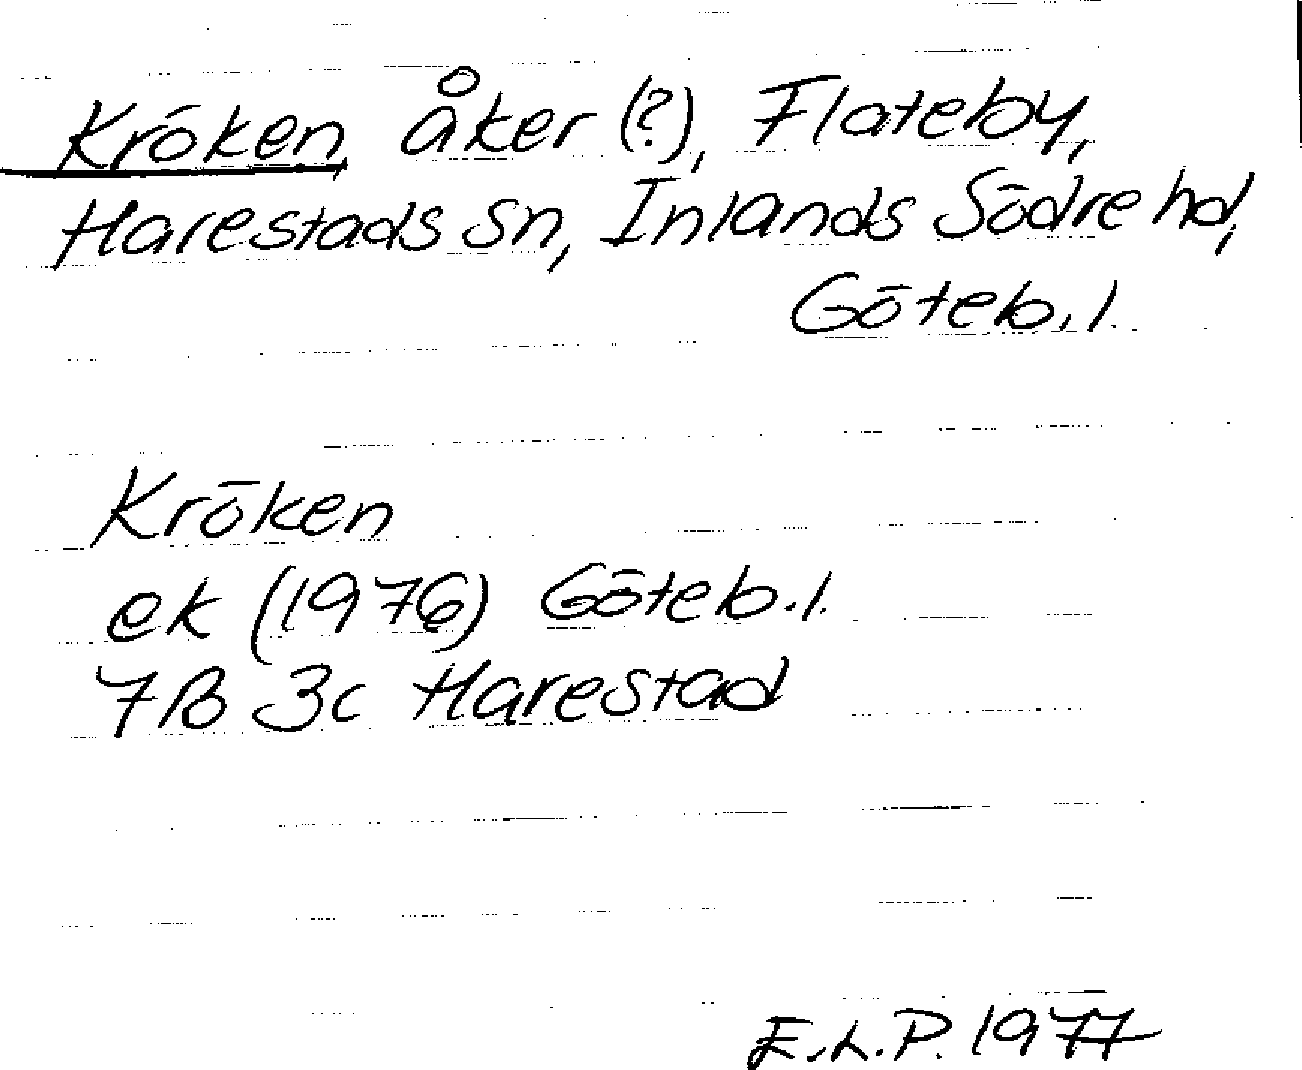 Kröken, åker (?), Flateby,
Harestads sn, Inlands Södre hd,
Göteb. l.
Kröken
ek (1976) Göteb. l.
7B 3c Harestad
E.L.P. 1977